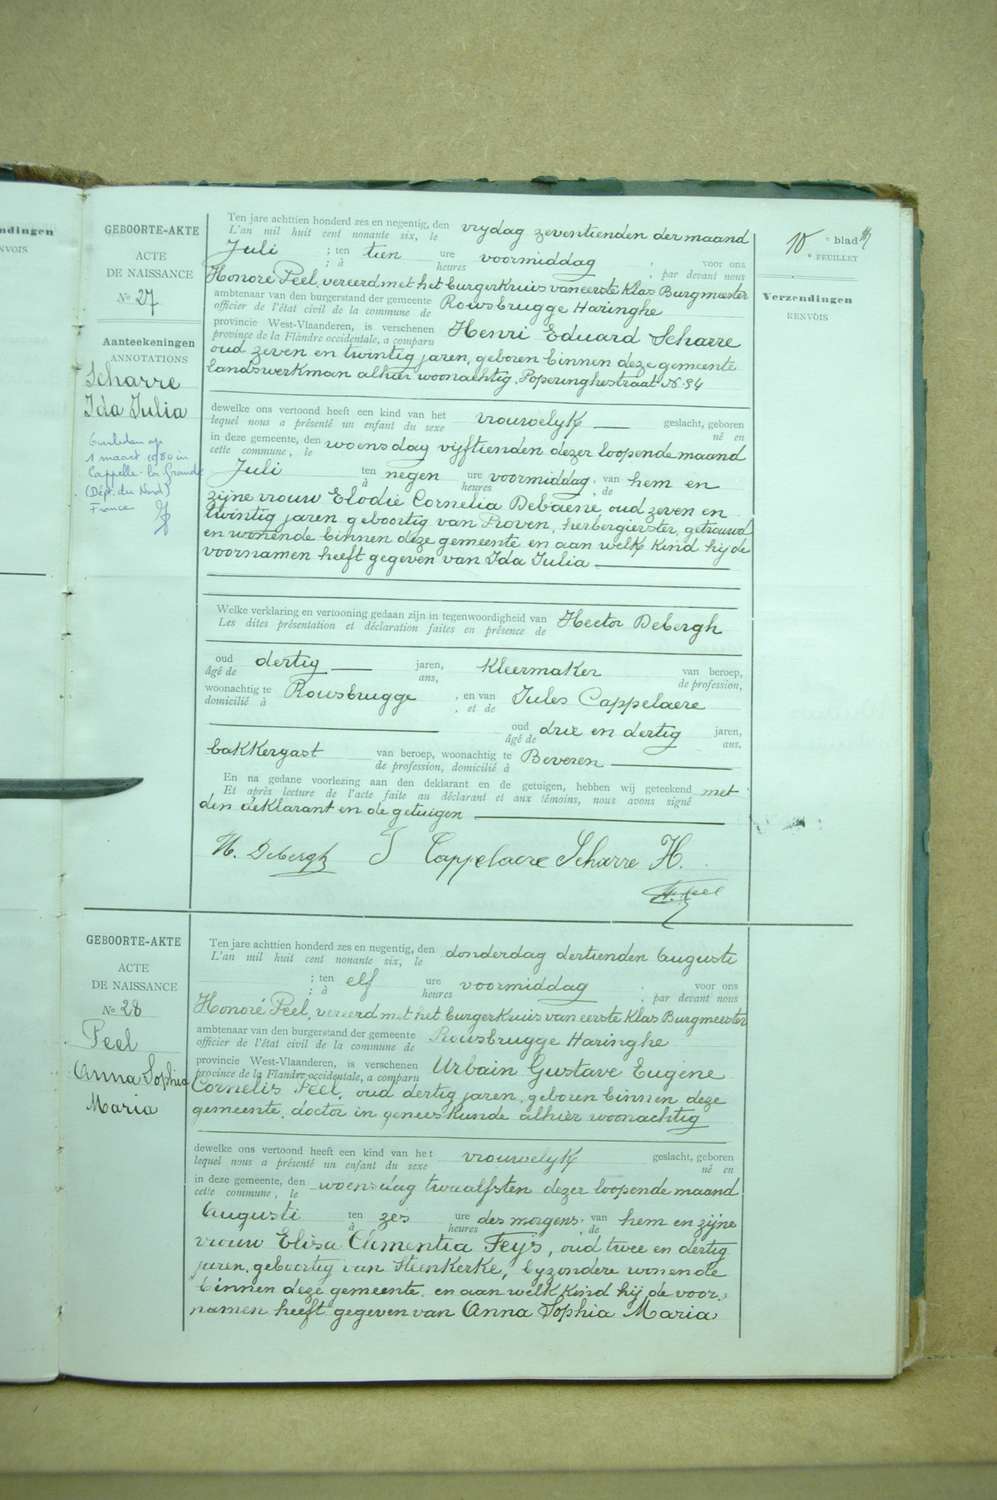 ndingen
NVOIS
GEBOORTE-AKTE
ACTE
DE NAISSANCE
No 27
Aanteekeningen
ANNOTATIONS
Scharre
Ida Julia
Overleden op
1 maart 1980 in
Cappelle-la-Grande
(Dépt. du Nord)
France
Ten jare achttien honderd zes en negentig, den vrydag zeventienden der maand
L'an mil huit cent nonante six, le
Juli ; ten tien ure voormiddag ; voor ons
; à heures , par devant nous
Honoré Peel, vereerd met het burgerkruis van eerste klas Burgmeester
ambtenaar van den burgerstand der gemeente Rousbrugge Haringhe
officier de l'état civil de la commune de
provincie West-Vlaanderen, is verschenen Henri Eduard Scharre
province de la Flandre occidentale, a comparu
oud zeven en twintig jaren, geboren binnen deze gemeente
landswerkman alhier woonachtig, Poperinghestraat N. 34
dewelke ons vertoond heeft een kind van het vrouwelyk geslacht, geboren
lequel nous a présenté un enfant du sexe né en
in deze gemeente, den woensdag vyftienden dezer loopende maand
cette commune, le
Juli ten negen ure voormiddag, van hem en
à heures , de
zijne vrouw Elodie Cornelia Debaene, oud zeven en
twintig jaren geboortig van Proven, herbergierster, getrouwd
en wonende binnen deze gemeente en aan welk kind hij de
voornamen heeft gegeven van Ida Julia
Welke verklaring en vertooning gedaan zijn in tegenwoordigheid van Hector Debergh
Les dites présentation et déclaration faites en présence de
oud dertig jaren, kleermaker van beroep,
âgé de ans, de profession,
woonachtig te Rousbrugge , en van Jules Cappelaere
domicilié à , et de
oud drie en dertig jaren,
âgé de ans,
bakkergast van beroep, woonachtig te Beveren
de profession, domicilié à
En na gedane voorlezing aan den deklarant en de getuigen, hebben wij geteekend met
Et après lecture de l'acte faite au déclarant et aux témoins, nous avons signé
den deklarant en de getuigen
H. Debergh J Cappelaere Scharre H.
H. Peel
10e blad
e FEUILLET
Verzendingen
RENVOIS
GEBOORTE-AKTE
ACTE
DE NAISSANCE
No 28
Peel
Anna Sophia
Maria
Ten jare achttien honderd zes en negentig, den donderdag dertienden Augusti
L'an mil huit cent nonante six, le
; ten elf ure voormiddag ; voor ons
; à heures , par devant nous
Honoré Peel, vereerd met het burgerkruis van eerste klas Burgmeester
ambtenaar van den burgerstand der gemeente Rousbrugge Haringhe
officier de l'état civil de la commune de
provincie West-Vlaanderen, is verschenen Urbain Gustave Eugène
province de la Flandre occidentale, a comparu
Cornelis Peel, oud dertig jaren, geboren binnen deze
gemeente, doctor in geneeskunde alhier woonachtig
dewelke ons vertoond heeft een kind van het vrouwelyk geslacht, geboren
lequel nous a présenté un enfant du sexe né en
in deze gemeente, den woensdag twaalfsten dezer loopende maand
cette commune, le
Augusti ten zes ure des morgens, van hem en zijne
à heures , de
vrouw Elisa Clementia Feys, oud twee en dertig
jaren, geboortig van Steenkerke, byzondere wonende
binnen deze gemeente, en aan welk kind hij de voor-
namen heeft gegeven van Anna Sophia Maria